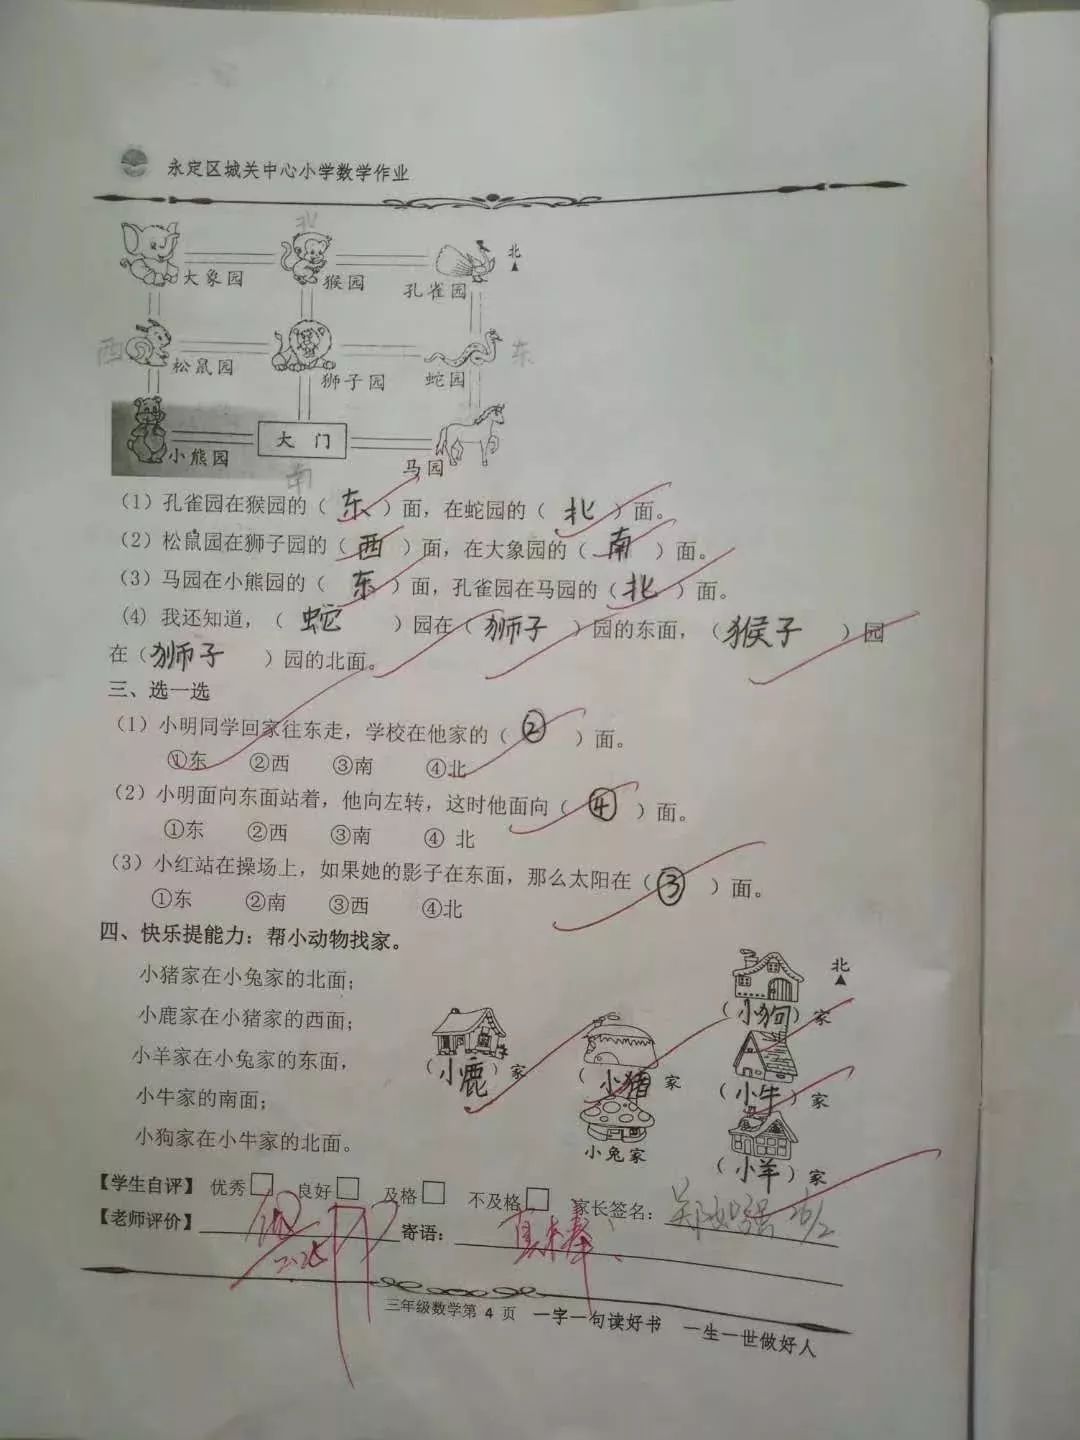 永定区城关中心小学数学作业
北
大象园 猴园 孔雀园 北
西 松鼠园 狮子园 蛇园 东
小熊园 大门 马园
南
（1）孔雀园在猴园的（东）面，在蛇园的（北）面。
（2）松鼠园在狮子园的（西）面，在大象园的（南）面。
（3）马园在小熊园的（东）面，孔雀园在马园的（北）面。
(4) 我还知道，（蛇）园在（狮子）园的东面，（猴子）园
在（狮子）园的北面。
三、选一选
（1）小明同学回家往东走，学校在他家的（②）面。
①东 ②西 ③南 ④北
（2）小明面向东面站着，他向左转，这时他面向（④）面。
①东 ②西 ③南 ④ 北
（3）小红站在操场上，如果她的影子在东面，那么太阳在（③）面。
①东 ②南 ③西 ④北
四、快乐提能力：帮小动物找家。
小猪家在小兔家的北面；
小鹿家在小猪家的西面；
小羊家在小兔家的东面，
小牛家的南面；
小狗家在小牛家的北面。
北
（小狗）家
（小鹿）家
（小猪）家
（小牛）家
小兔家
（小羊）家
【学生自评】 优秀□ 良好□ 及格□ 不及格□ 家长签名： 26/2
【老师评价】 优 2.26 寄语： 真棒
三年级数学第 4 页 一字一句读好书 一生一世做好人